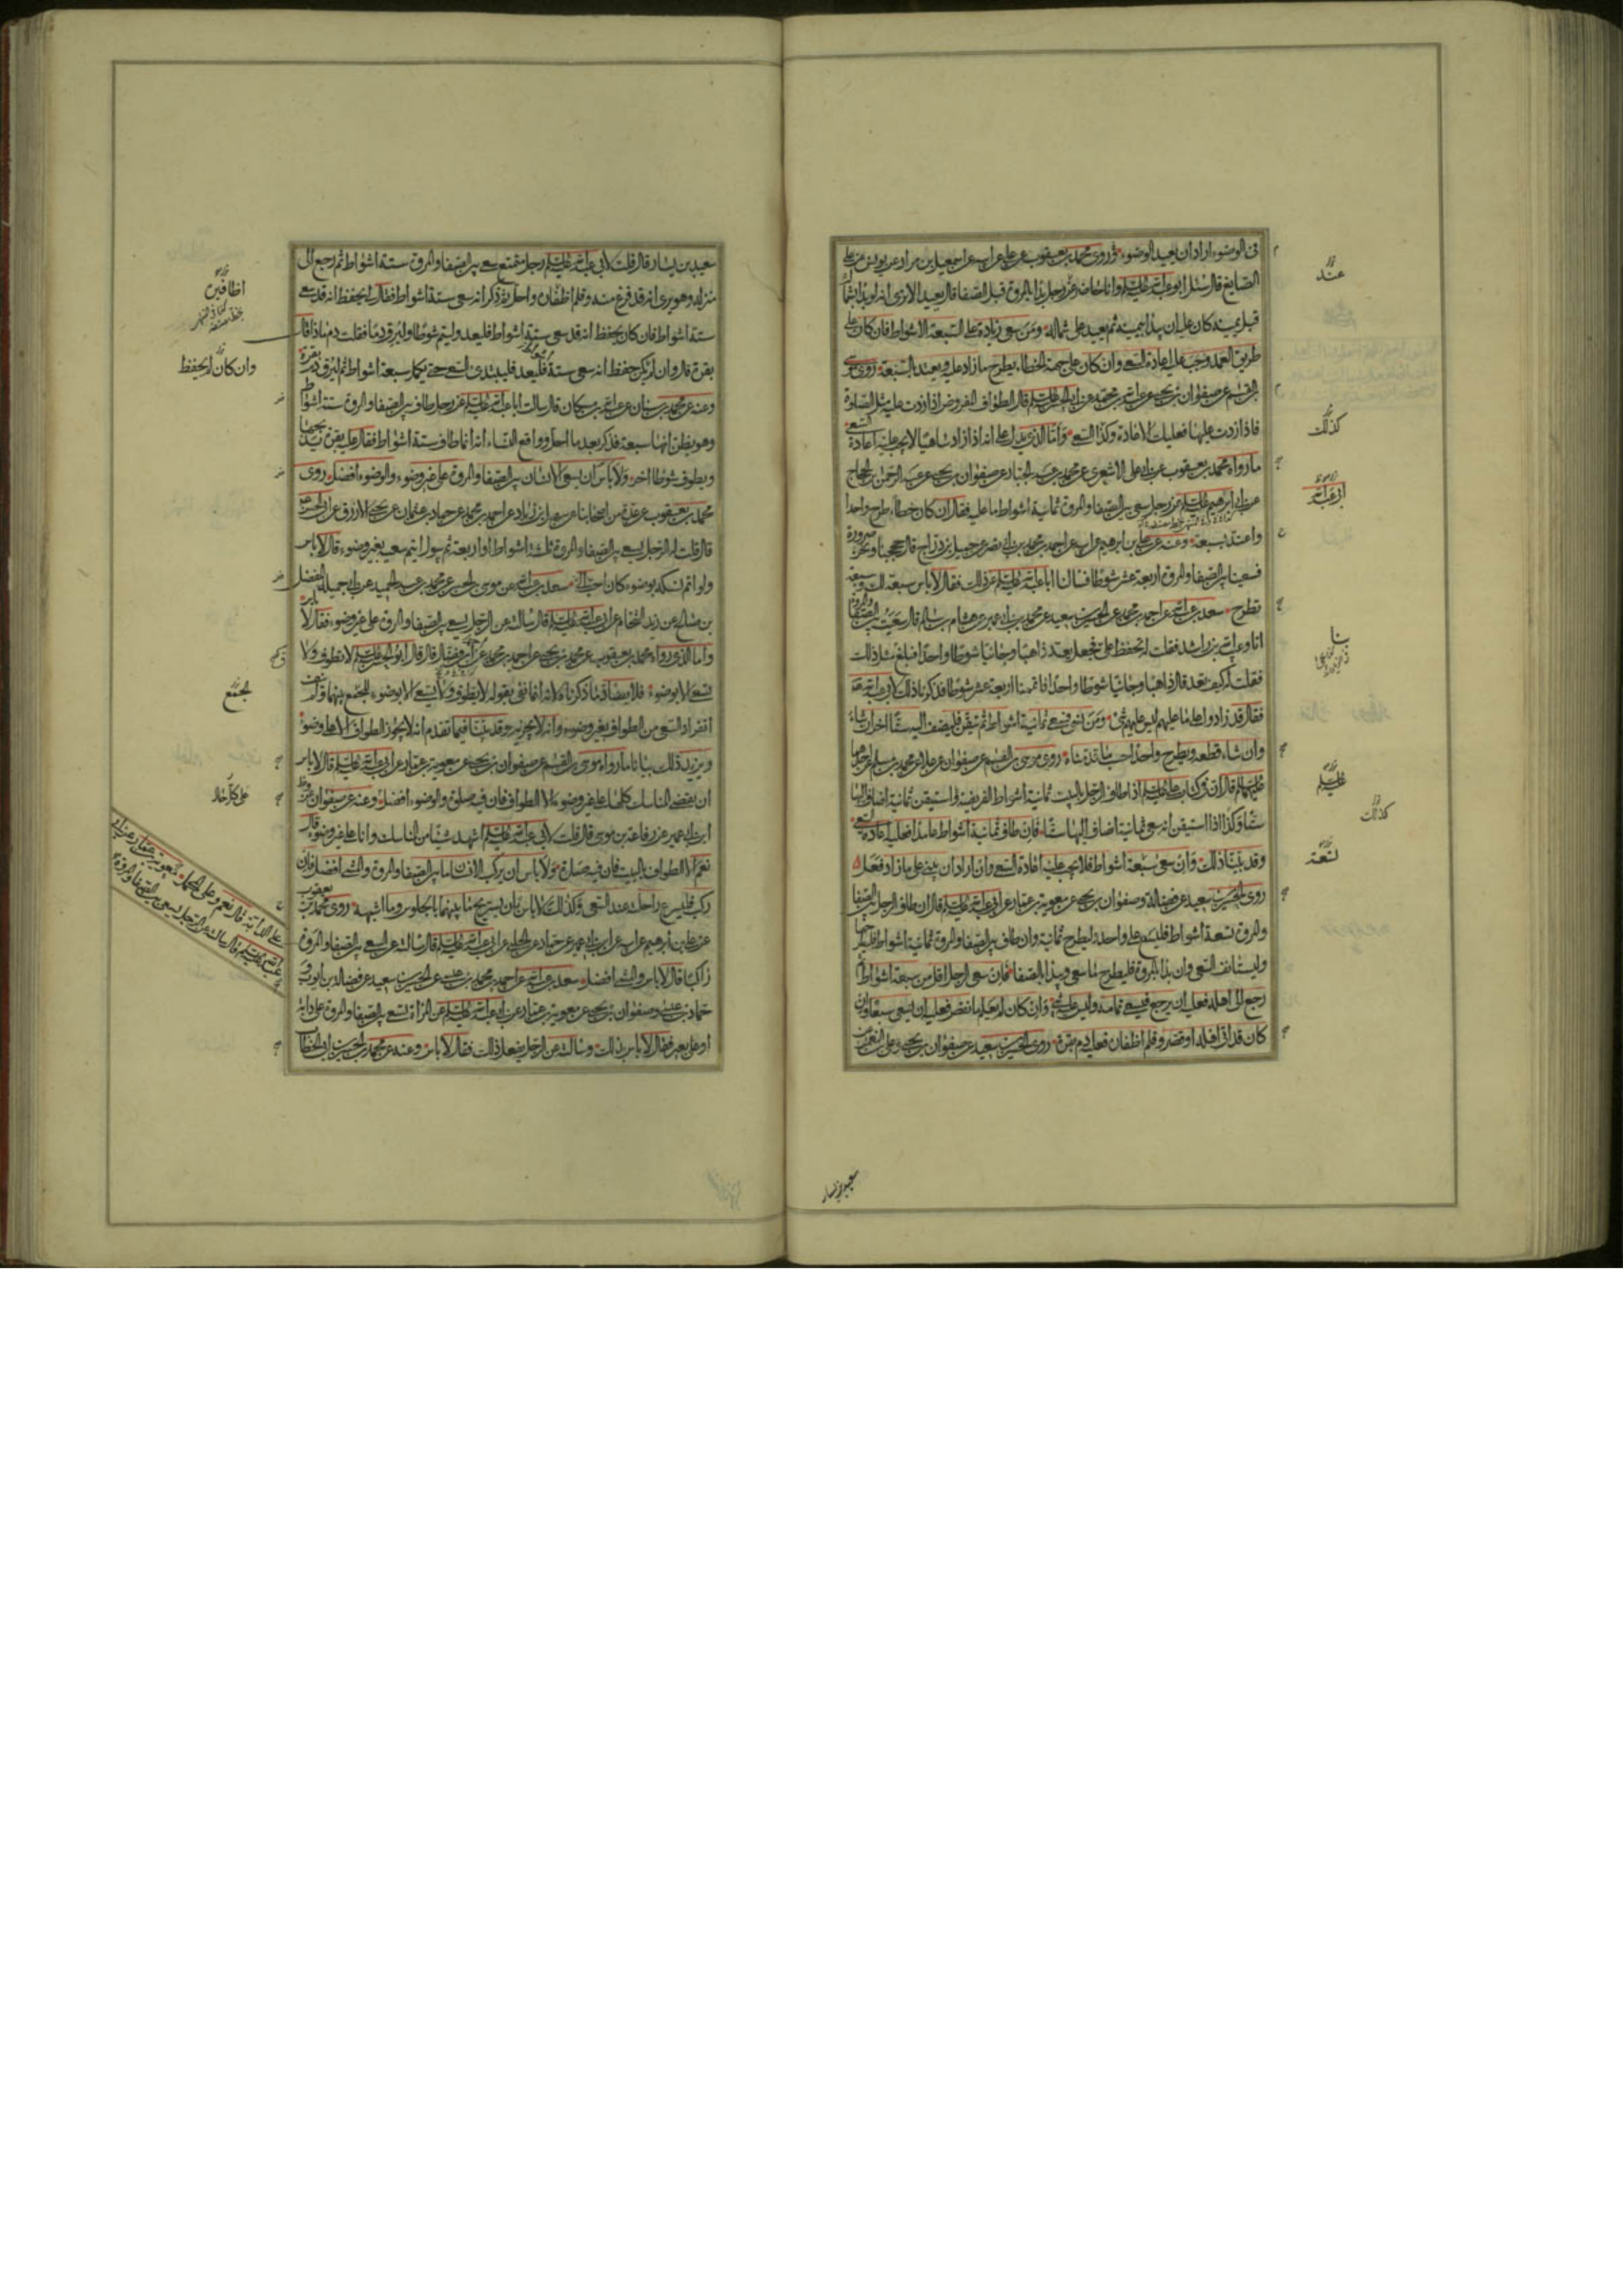 في الوضوء اراد ان يعيد الوضوء وروى محمد بن يعقوب عن علي عن ابيه عن اسمعيل بن مرار عن يونس عن علي
الصايغ قال سئل ابو عبد الله عليه السلم وانا حاضر عن رجل بدا بالمروة قبل الصفا قال يعيد الا ترى انه لو بدا بشماله
قبل يمينه كان عليه ان يبدا بيمينه ثم يعيد على شماله ومن سعى زيادة على السبعة الاشواط فان كان على
طريق العمد وجب عليه اعادة السعي وان كان على جهة الخطاء يطرح ما زاد عليه ويعتد بالسبعة روى موسى بن
القسم عن صفوان بن يحيى عن عبد الله بن محمد عن ابي الحسن عليه السلم قال الطواف المفروض اذا زدت عليه مثل الصلوة
فاذا زدت عليها فعليك الاعادة وكذا السعي واما الذي يدل على انه اذا زاد ساهيا لا يجب عليه اعادة السعي
ما رواه محمد بن يعقوب عن ابي علي الاشعري عن محمد بن عبد الجبار عن صفوان بن يحيى عن عبد الرحمن بن الحجاج
عن ابي ابرهيم عليه السلم في رجل سعى بين الصفا والمروة ثمانية اشواط ما عليه فقال ان كان خطاء طرح واحدا
واعتد بسبعة وعنه عن علي بن ابرهيم عن ابيه عن احمد بن محمد بن ابي نصر عن جميل بن دراج قال حججنا ونحن صرورة
فسعينا بين الصفا والمروة اربعة عشر شوطا فسالنا ابا عبد الله عليه السلم عن ذلك فقال لا باس سبعة لك وسبعة
تطرح سعد بن عبد الله عن احمد بن محمد عن الحسين بن سعيد عن محمد بن ابي عمير عن هشام بن سالم قال سعيت بين الصفا والمروة
انا وعبيد الله بن راشد فقلت له تحفظ علي فجعل يعد ذاهبا وجائيا شوطا واحدا فبلغ مثل ذلك
فقلت له كيف تعد قال ذاهبا وجائيا شوطا واحدا فاتممنا اربعة عشر شوطا فذكرنا ذلك لابي عبد الله
فقال قد زادوا على ما عليهم ليس عليهم شيء ومن سعى ثمانية اشواط ثم تيقن فليضف اليه ستا اخر ان شاء
وان شاء قطعه ويطرح واحدا حسب ما قدمناه روى موسى بن القسم عن صفوان عن علا عن محمد بن مسلم عن احدهما
عليهما السلم قال ان في كتاب علي عليه السلم اذا طاف الرجل بالبيت ثمانية اشواط الفريضة واستيقن ثمانية اضاف اليها
ستا وكذا اذا استيقن انه سعى ثمانية اضاف اليها ستا فان طاف ثمانية اشواط عامدا فعليه اعادة السعي
وقد بينا ذلك وان سعى سبعة اشواط فلا يجب عليه اعادة السعي وان اراد ان يبني على ما زاد فعل
روى الحسين بن سعيد عن فضالة وصفوان بن يحيى عن معوية بن عمار عن ابي عبد الله عليه السلم قال ان طاف الرجل بين الصفا
والمروة تسعة اشواط فليسع على واحد وليطرح ثمانية وان طاف بين الصفا والمروة ثمانية اشواط فليطرحها
وليستانف السعي وان بدا بالمروة فليطرح ما سعى ويبدا بالصفا فان سعى الرجل اقل من سبعة اشواط ثم
رجع الى اهله فعليه ان يرجع فيسعى تمامه وليس عليه شيء وان كان لم يعلم ما نقص فعليه ان يسعى سبعا وان
كان قد اتى اهله او قصر وقلم اظفاره فعليه دم بقرة روى الحسين بن سعيد عن صفوان بن يحيى وعلي بن النعمن عن
عند
كذلك
بنا
عليه السلم
كذلك
لتسعة
سعيد بن يسار
سعيد بن يسار قال قلت لابي عبد الله عليه السلم رجل متمتع سعى بين الصفا والمروة ستة اشواط ثم رجع الى
منزله وهو يرى انه قد فرغ منه وقلم اظفاره واحل ثم ذكر انه سعى ستة اشواط فقال لي يحفظ انه قد سعى
ستة اشواط فان كان يحفظ انه قد سعى ستة اشواط فليعد وليتم شوطا وليرق دما فقلت دم ماذا قال
بقرة قال وان لم يكن حفظ انه سعى ستة فليعد فليبتدئ السعي حتى يكمل سبعة اشواط ثم ليرق دم بقرة
وعنه عن محمد بن سنان عن عبد الله بن مسكان قال سالت ابا عبد الله عليه السلم عن رجل طاف بين الصفا والمروة ستة اشواط
وهو يظن انها سبعة فذكر بعد ما احل وواقع النساء انه انما طاف ستة اشواط فقال عليه بقرة يذبحها
ويطوف شوطا اخر ولا باس ان يسعى الانسان بين الصفا والمروة على غير وضوء والوضوء افضل روى
محمد بن يعقوب عن عدة من اصحابنا عن سهل بن زياد عن احمد بن محمد عن حماد بن عثمان عن يحيى الازرق عن ابي الحسن
قال قلت له الرجل يسعى بين الصفا والمروة ثلثة اشواط او اربعة ثم يبول ايتم سعيه بغير وضوء قال لا باس
ولو اتم نسكه بوضوء كان احب الي سعد بن عبد الله عن موسى بن الحسن عن محمد بن عبد الحميد عن ابي جميلة المفضل
بن صالح عن زيد الشحام عن ابي عبد الله عليه السلم قال سالته عن الرجل يسعى بين الصفا والمروة على غير وضوء فقال لا باس
واما الذي رواه محمد بن يعقوب عن محمد بن يحيى عن احمد بن محمد عن ابن فضال قال قال ابو الحسن عليه السلم لا تطوف ولا
تسعى الا بوضوء فلا ينافي ما ذكرناه لانه انما نفى بقوله لا يطوف ولا يسعى الا بوضوء للجمع بينهما ولم
انفراد السعي من الطواف بغير وضوء وانه لا يجزيه وقد بينا فيما تقدم انه لا يجوز الطواف الا على وضوء
ويزيد ذلك بيانا ما رواه موسى بن القسم عن صفوان بن يحيى عن معوية بن عمار عن ابي عبد الله عليه السلم قال لا باس
ان يقضي المناسك كلها على غير وضوء الا الطواف فان فيه صلوة والوضوء افضل وعنه عن صفوان
ابن ابي عمير عن رفاعة بن موسى قال قلت لابي عبد الله عليه السلم اشهد شيئا من المناسك وانا على غير وضوء قال
نعم الا الطواف بالبيت فان فيه صلوة ولا باس ان يركب الانسان ما بين الصفا والمروة والمشي افضل فان
ركب فليسرع راحلته عند السعي وكذلك لا باس بان يستريح ما بينهما بالجلوس وما اشبهه روى محمد بن يعقوب
عن علي بن ابرهيم عن ابيه عن ابن ابي عمير عن حماد عن الحلبي عن ابي عبد الله عليه السلم قال سالته عن السعي بين الصفا والمروة
على الدابة قال نعم وعلى المحمل معوية بن عمار عن ابي
عبد الله عليه السلم قال سالته عن الرجل يسعى بين الصفا والمروة
راكبا قال لا باس والمشي افضل سعد بن عبد الله عن احمد بن محمد بن عيسى عن الحسين بن سعيد عن فضالة بن ايوب و
حماد بن عيسى وصفوان بن يحيى عن معوية بن عمار عن ابي عبد الله عليه السلم عن المراة تسعى بين الصفا والمروة على دابة
او على بعير فقال لا باس بذلك وسالته عن الرجل يفعل ذلك فقال لا باس وعنه عن محمد بن الحسين بن ابي الخطاب
اظافيره
وان كان لم يحفظ
لجمع
على كل حال